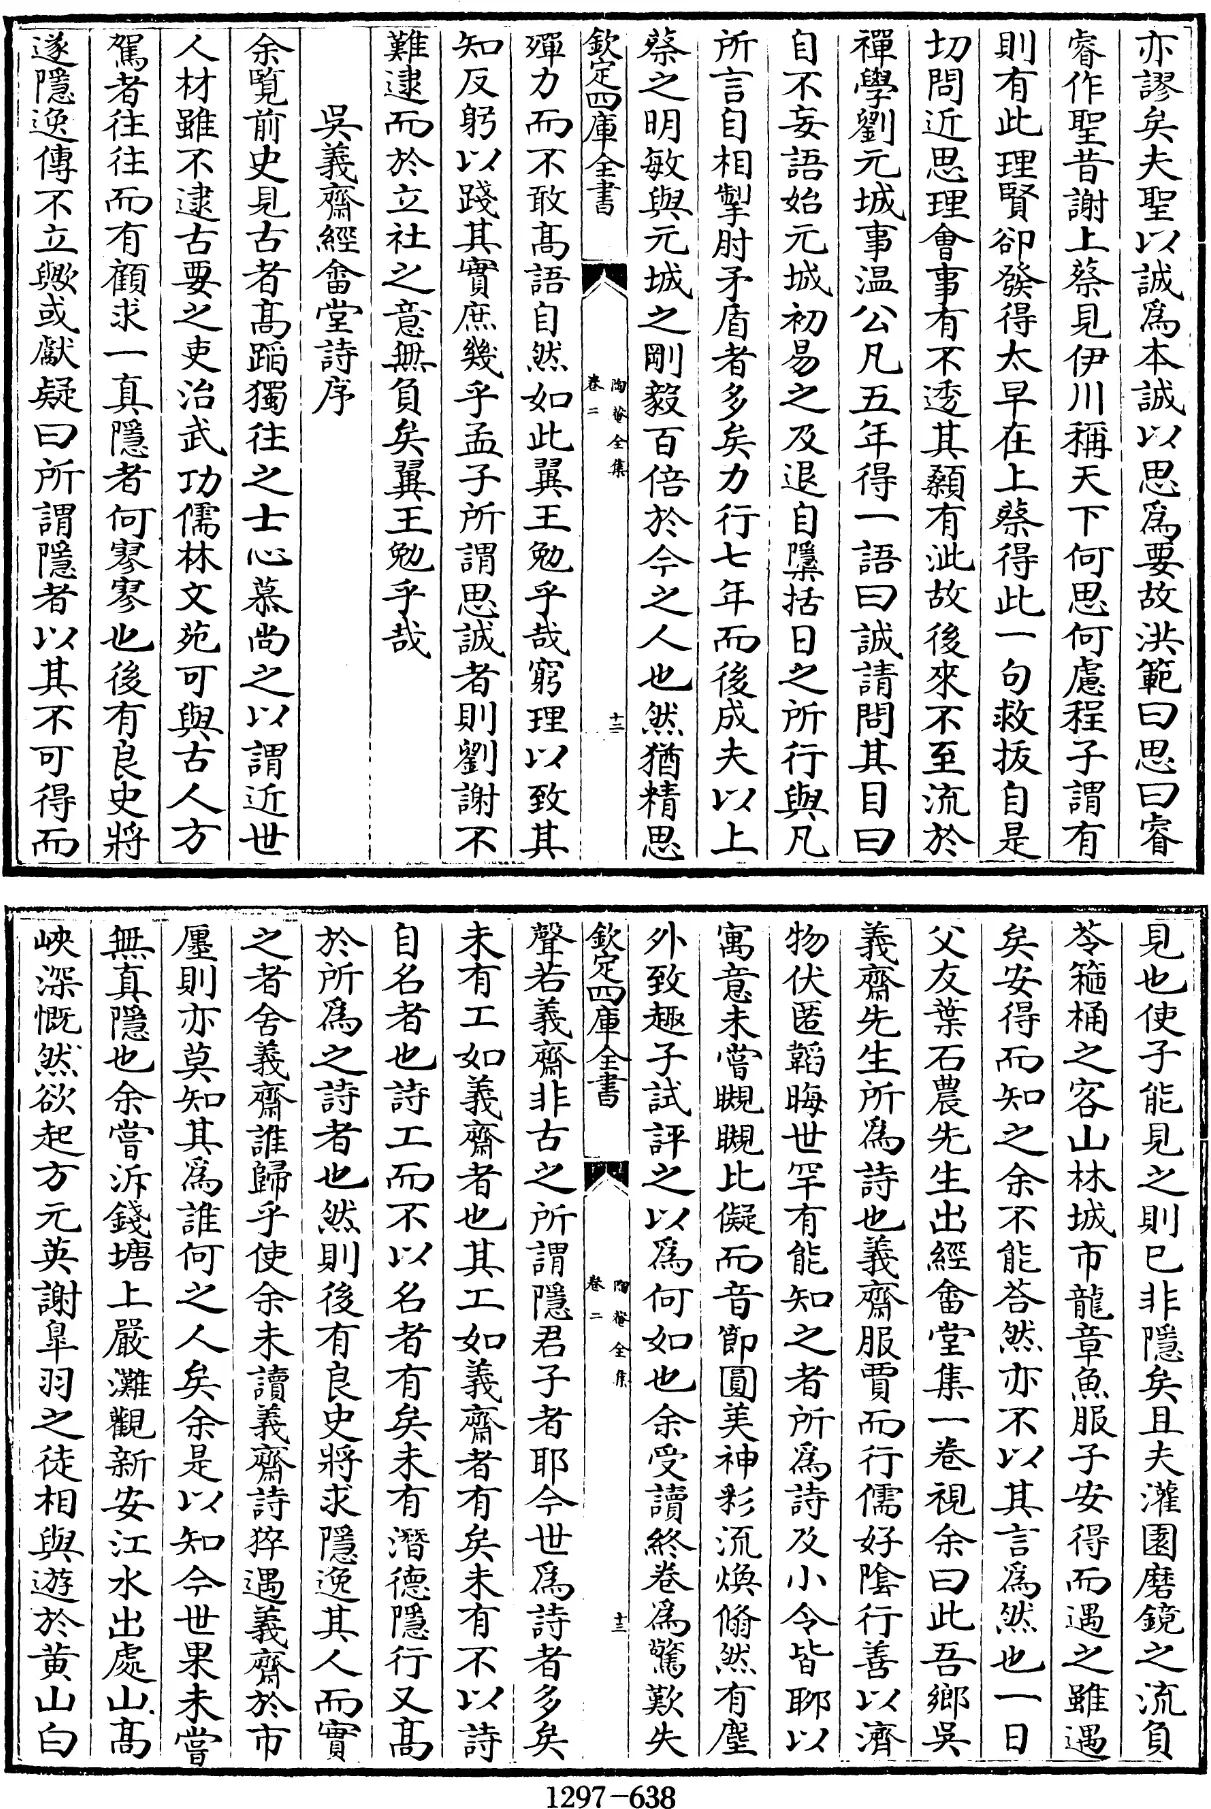 亦謬矣夫聖以誠爲本誠以思爲要故洪範曰思曰睿
睿作聖昔謝上蔡見伊川稱天下何思何慮程子謂有
則有此理賢卻發得太早在上蔡得此一句救拔自是
切問近思理會事有不透其顙有泚故後來不至流於
禪學劉元城事温公凡五年得一語曰誠請問其目曰
自不妄語始元城初易之及退自隱括日之所行與凡
所言自相掣肘矛盾者多矣力行七年而後成夫以上
蔡之明敏與元城之剛毅百倍於今之人也然猶精思
欽定四庫全書
陶菴全集
卷二
十二
殫力而不敢髙語自然如此翼王勉乎哉窮理以致其
知反躬以踐其實庶幾乎孟子所謂思誠者則劉謝不
難逮而於立社之意無負矣翼王勉乎哉
吳義齋經畬堂詩序
余覽前史見古者髙蹈獨往之士心慕尚之以謂近世
人材雖不逮古要之吏治武功儒林文苑可與古人方
駕者往往而有顧求一真隱者何寥寥也後有良史將
遂隱逸傳不立歟或獻疑曰所謂隱者以其不可得而
見也使子能見之則已非隱矣且夫灌園磨鏡之流負
苓箍桶之客山林城市龍章魚服子安得而遇之雖遇
矣安得而知之余不能荅然亦不以其言爲然也一日
父友葉石農先生出經畬堂集一卷視余曰此吾鄉吳
義齋先生所爲詩也義齋服賈而行儒好隂行善以濟
物伏匿韜晦世罕有能知之者所爲詩及小令皆聊以
寓意未嘗覞覞比儗而音節圓美神彩流煥翛然有塵
外致趣子試評之以爲何如也余受讀終卷爲驚歎失
欽定四庫全書
陶菴全集
卷二
十三
聲若義齋非古之所謂隱君子者耶今世爲詩者多矣
未有工如義齋者也其工如義齋者有矣未有不以詩
自名者也詩工而不以名者有矣未有潛德隱行又髙
於所爲之詩者也然則後有良史將求隱逸其人而實
之者舍義齋誰歸乎使余未讀義齋詩猝遇義齋於市
廛則亦莫知其爲誰何之人矣余是以知今世果未嘗
無真隱也余嘗泝錢塘上嚴灘觀新安江水出處山髙
峽深慨然欲起方元英謝臯羽之徒相與遊於黄山白
1297-638